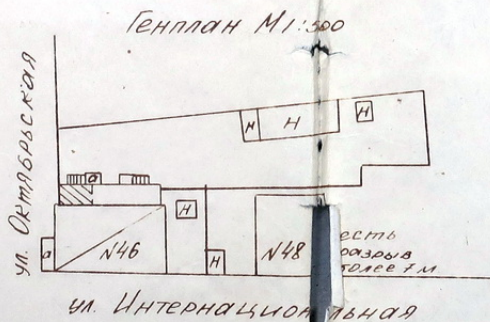 Генплан М 1:500
ул. Октябрьская
Н
Н
Н
а
Н
а
N46
Н
N48
есть
разрыв
более 7 м
ул. Интернациональная